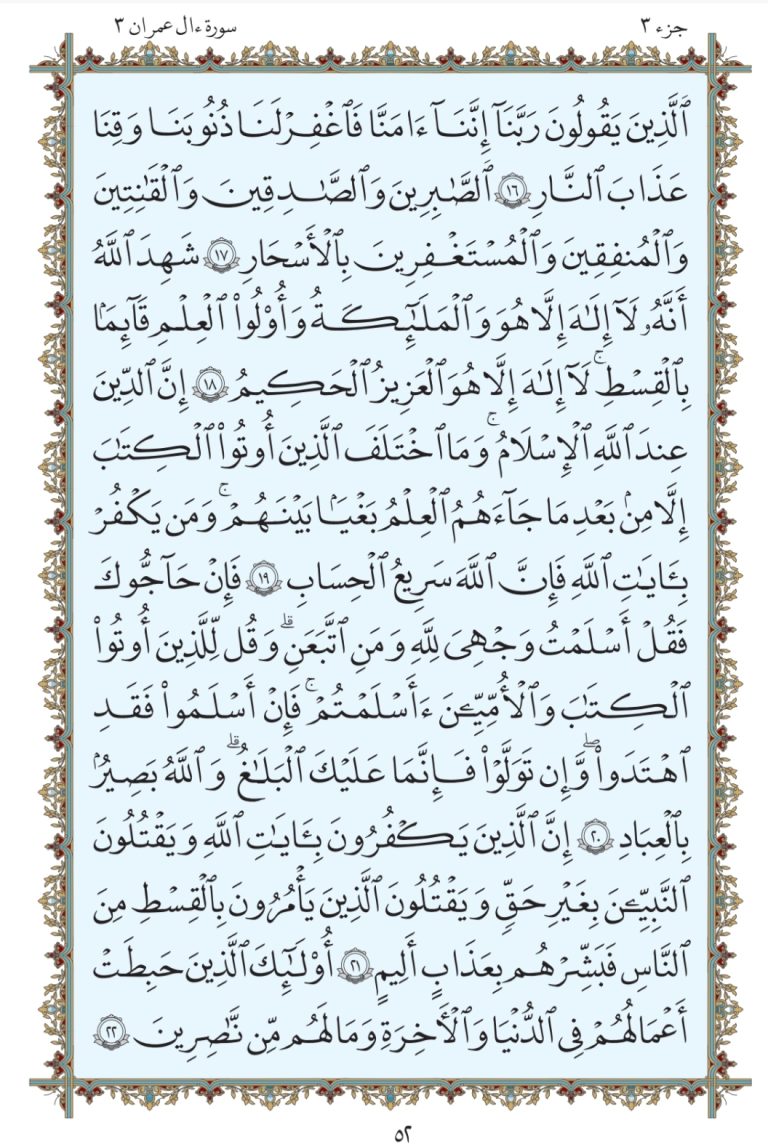 جزء ٣
سورة ءال عمران ٣
ٱلَّذِينَ يَقُولُونَ رَبَّنَآ إِنَّنَآ ءَامَنَّا فَٱغْفِرْ لَنَا ذُنُوبَنَا وَقِنَا
عَذَابَ ٱلنَّارِ ١٦ ٱلصَّٰبِرِينَ وَٱلصَّٰدِقِينَ وَٱلْقَٰنِتِينَ
وَٱلْمُنفِقِينَ وَٱلْمُسْتَغْفِرِينَ بِٱلْأَسْحَارِ ١٧ شَهِدَ ٱللَّهُ
أَنَّهُۥ لَآ إِلَٰهَ إِلَّا هُوَ وَٱلْمَلَٰٓئِكَةُ وَأُو۟لُوا۟ ٱلْعِلْمِ قَآئِمَۢا
بِٱلْقِسْطِ ۚ لَآ إِلَٰهَ إِلَّا هُوَ ٱلْعَزِيزُ ٱلْحَكِيمُ ١٨ إِنَّ ٱلدِّينَ
عِندَ ٱللَّهِ ٱلْإِسْلَٰمُ ۗ وَمَا ٱخْتَلَفَ ٱلَّذِينَ أُوتُوا۟ ٱلْكِتَٰبَ
إِلَّا مِنۢ بَعْدِ مَا جَآءَهُمُ ٱلْعِلْمُ بَغْيَۢا بَيْنَهُمْ ۗ وَمَن يَكْفُرْ
بِـَٔايَٰتِ ٱللَّهِ فَإِنَّ ٱللَّهَ سَرِيعُ ٱلْحِسَابِ ١٩ فَإِنْ حَآجُّوكَ
فَقُلْ أَسْلَمْتُ وَجْهِىَ لِلَّهِ وَمَنِ ٱتَّبَعَنِ ۗ وَقُل لِّلَّذِينَ أُوتُوا۟
ٱلْكِتَٰبَ وَٱلْأُمِّيِّـۧنَ ءَأَسْلَمْتُمْ ۚ فَإِنْ أَسْلَمُوا۟ فَقَدِ
ٱهْتَدَوا۟ ۖ وَّإِن تَوَلَّوْا۟ فَإِنَّمَا عَلَيْكَ ٱلْبَلَٰغُ ۗ وَٱللَّهُ بَصِيرٌۢ
بِٱلْعِبَادِ ٢٠ إِنَّ ٱلَّذِينَ يَكْفُرُونَ بِـَٔايَٰتِ ٱللَّهِ وَيَقْتُلُونَ
ٱلنَّبِيِّـۧنَ بِغَيْرِ حَقٍّ وَيَقْتُلُونَ ٱلَّذِينَ يَأْمُرُونَ بِٱلْقِسْطِ مِنَ
ٱلنَّاسِ فَبَشِّرْهُم بِعَذَابٍ أَلِيمٍ ٢١ أُو۟لَٰٓئِكَ ٱلَّذِينَ حَبِطَتْ
أَعْمَٰلُهُمْ فِى ٱلدُّنْيَا وَٱلْأَخِرَةِ وَمَا لَهُم مِّن نَّٰصِرِينَ ٢٢
٥٢